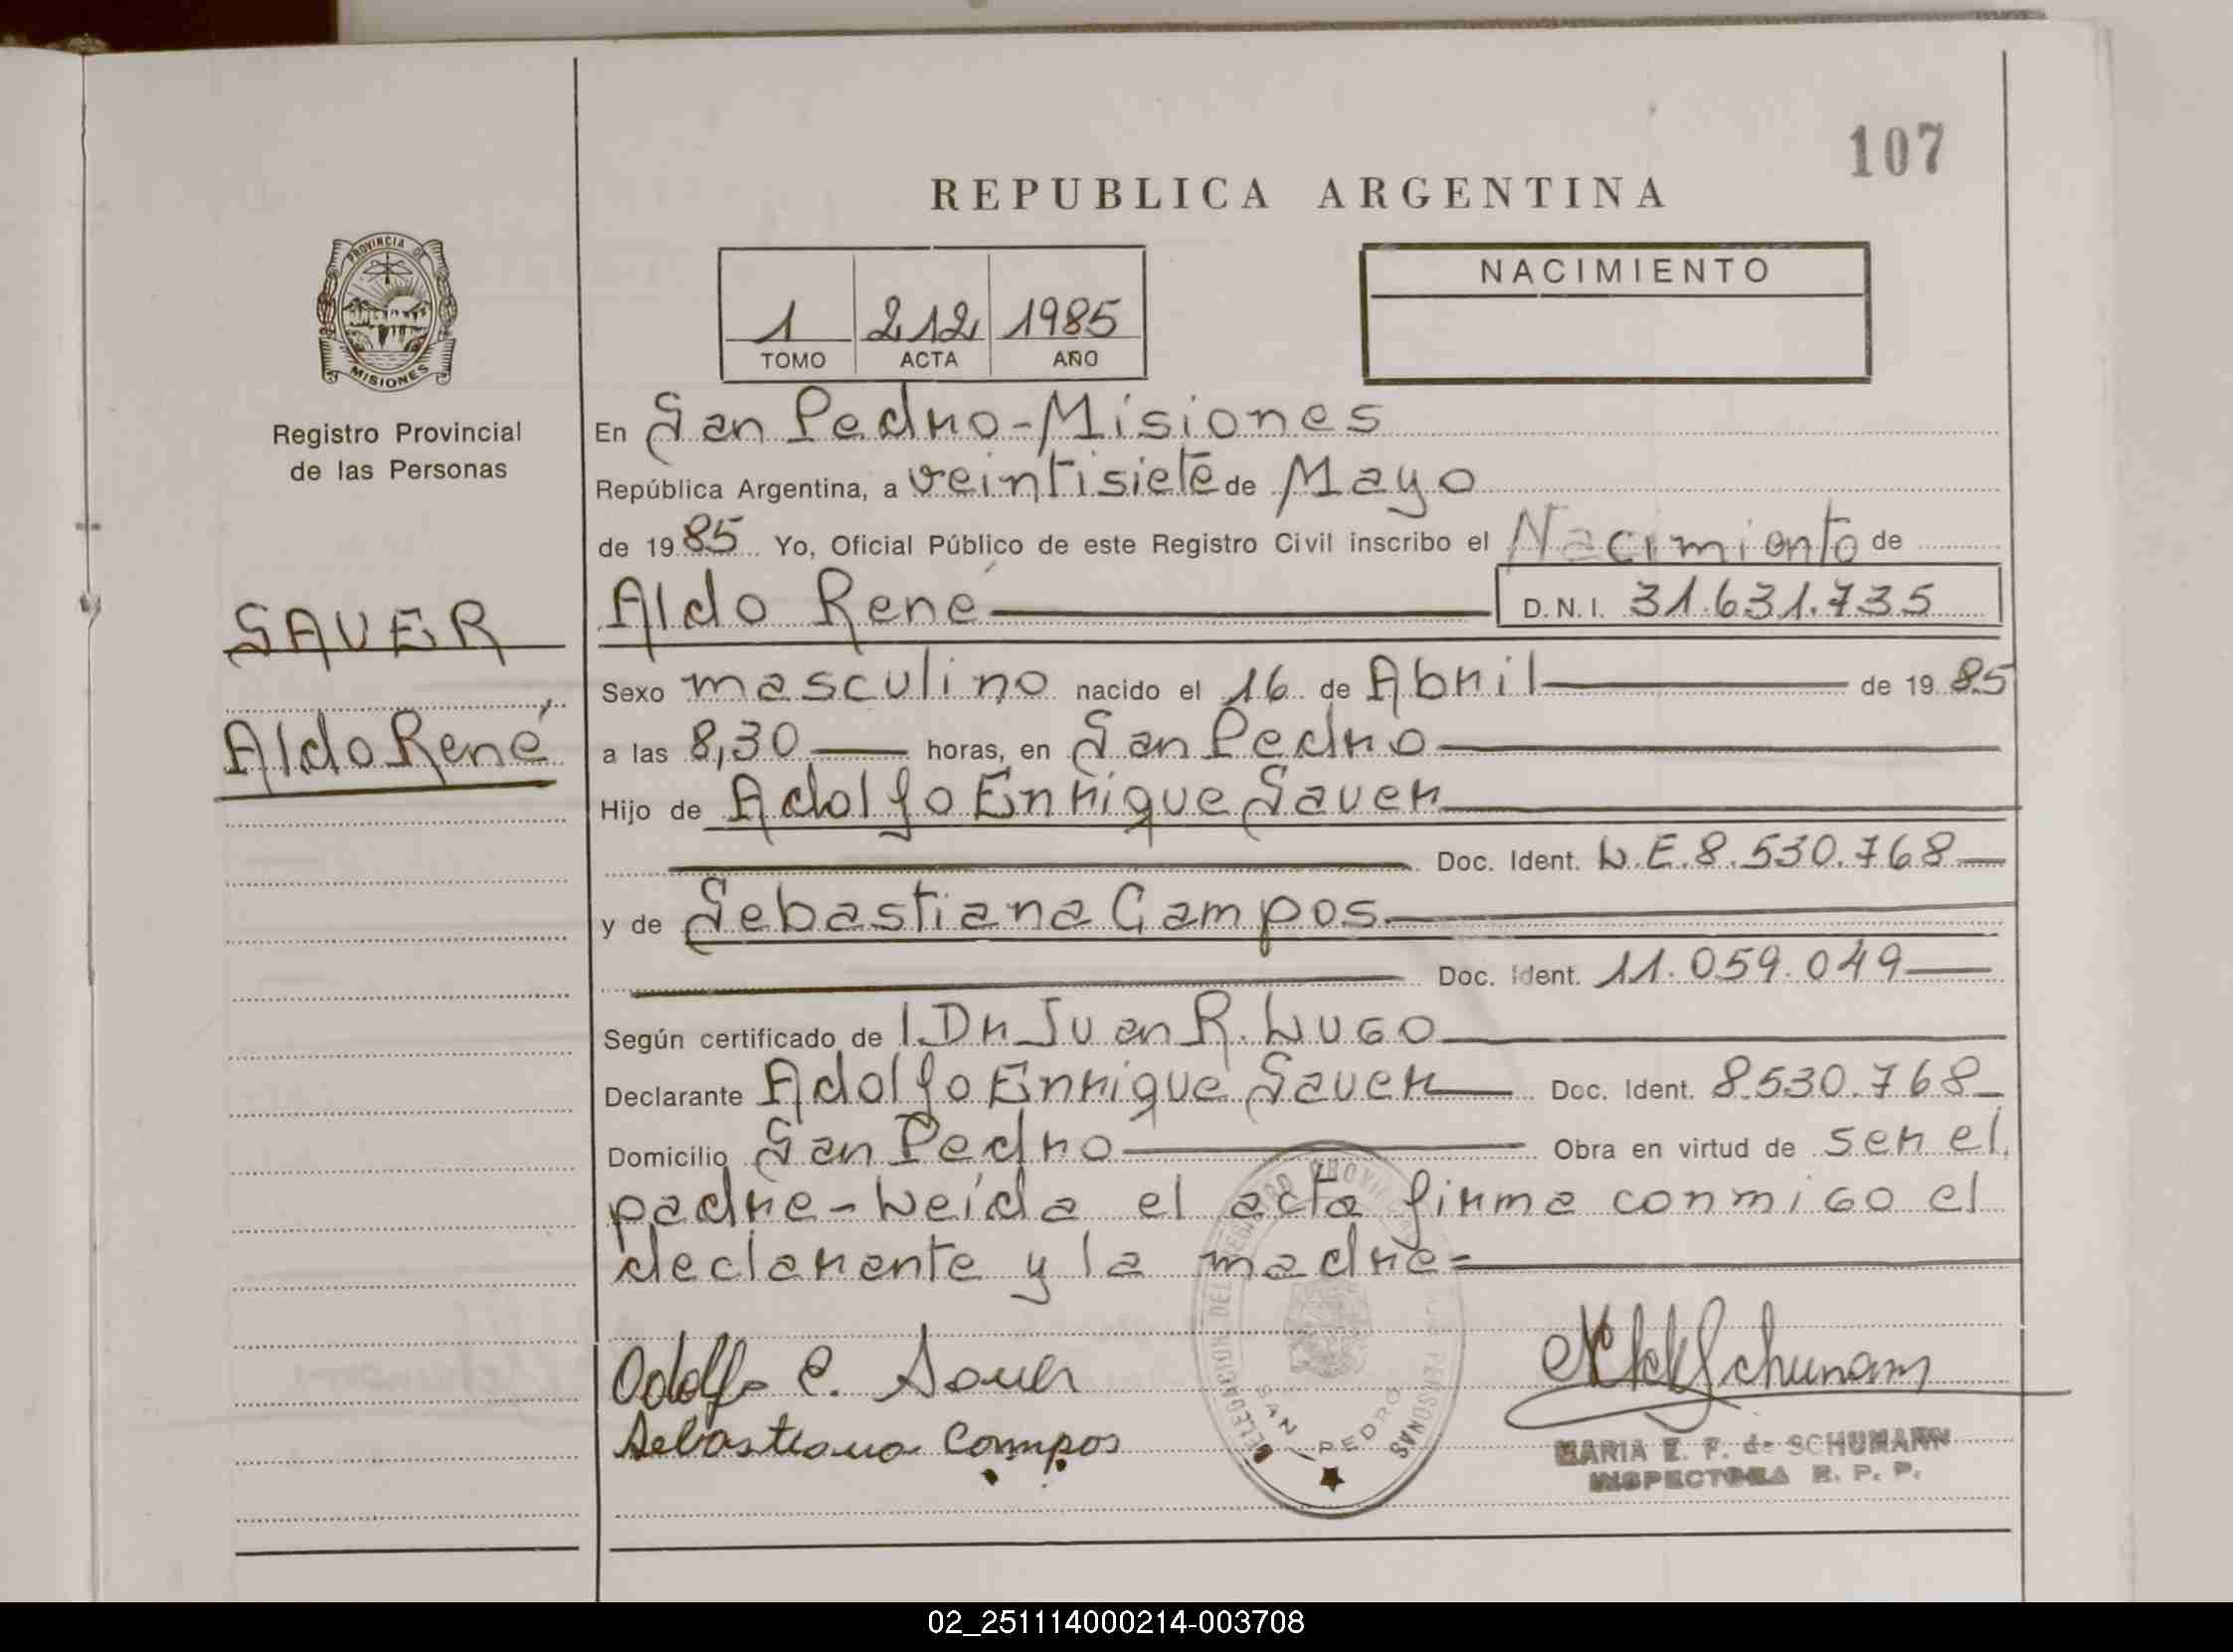 107
REPUBLICA ARGENTINA
PROVINCIA DE
MISIONES
Registro Provincial
de las Personas
1 212 1985
TOMO ACTA AÑO
NACIMIENTO
En San Pedro-Misiones
República Argentina, a veintisiete de Mayo
de 1985 Yo, Oficial Público de este Registro Civil inscribo el Nacimiento de
SAUER
Aldo René
Aldo René D.N.I. 31.631.735
Sexo masculino nacido el 16 de Abril de 1985
a las 8,30 horas, en San Pedro
Hijo de Adolfo Enrique Sauer
Doc. Ident. L.E.8.530.768
y de Sebastiana Campos
Doc. Ident. 11.059.049
Según certificado de Dr Juan R. LUGO
Declarante Adolfo Enrique Sauer Doc. Ident. 8.530.768
Domicilio San Pedro Obra en virtud de ser el
padre-Leída el acta firma conmigo el
declarante y la madre=
Adolfo E. Sauer
Sebastiana Campos
SAN PEDRO
MARIA E. F. de SCHUMANN
INSPECTORA R. P. P.
02_251114000214-003708